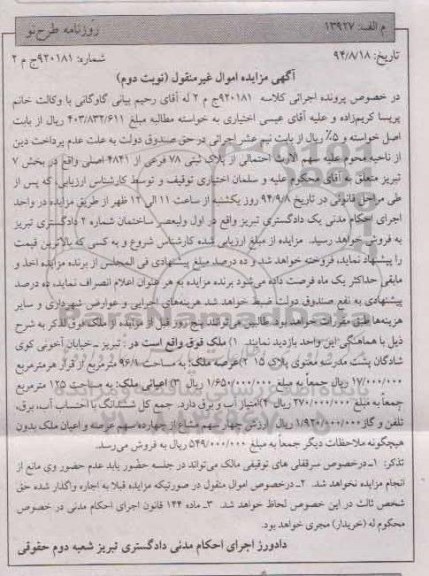 م الف: ۱۳۹۲۷
روزنامه طرح نو
تاریخ: ۹۴/۸/۱۸
شماره: ۹۲۰۱۸۱ج م ۲
آگهی مزایده اموال غیرمنقول (نوبت دوم)
در خصوص پرونده اجرائی کلاسه ۹۲۰۱۸۱ ج م ۲ له آقای رحیم بیانی گاوگانی با وکالت خانم
پریسا کریم‌زاده و علیه آقای عیسی اختیاری به خواسته مطالبه مبلغ ۴۰۳/۸۳۲/۶۱۱ ریال از بابت
اصل خواسته و ۵٪ ریال از بابت نیم عشر اجرائی در حق صندوق دولت به علت عدم پرداخت دین
از ناحیه محکوم علیه سهم الارث احتمالی از پلاک ثبتی ۷۸ فرعی از ۴۸۴۱ اصلی واقع در بخش ۷
تبریز متعلق به آقای محکوم علیه و سلمان اختیاری توقیف و توسط کارشناس ارزیابی، که پس از
طی مراحل قانونی در تاریخ ۹۴/۹/۸ روز یکشنبه از ساعت ۱۱ الی ۱۲ ظهر از طریق مزایده در واحد
اجرای احکام مدنی یک دادگستری تبریز واقع در اول ولیعصر ساختمان شماره ۲ دادگستری تبریز
به فروش خواهد رسید. مزایده از مبلغ ارزیابی شده کارشناس شروع و به کسی که بالاترین قیمت
را پیشنهاد نماید، فروخته خواهد شد و ده درصد مبلغ پیشنهادی فی المجلس از برنده مزایده اخذ و
مابقی حداکثر یک ماه فرصت داده می‌شود برنده مزایده به هر عنوان اعلام انصراف نماید، ده درصد
پیشنهادی به نفع صندوق دولت ضبط خواهد شد هزینه‌های اجرایی و عوارض شهرداری و سایر
هزینه‌ها طبق مقررات خواهد بود. طالبین می‌توانند پنج روز قبل از مزایده از ملک فوق الذکر به شرح
ذیل با هماهنگی این واحد بازدید نمایند. ۱) ملک فوق واقع است در: تبریز ـ خیابان آخونی کوی
شادگان پشت مدرسه معنوی پلاک ۱۵ ۲)عرصه ملک: به مساحت ۹۶/۹ مترمربع از قرار هرمترمربع
۱۷/۰۰۰/۰۰۰ ریال جمعاً به مبلغ ۱/۶۵۰/۰۰۰/۰۰۰ ریال ۳) اعیانی ملک: به مساحت ۱۲۵ مترمربع
جمعاً به مبلغ ۲۷۰/۰۰۰/۰۰۰ ریال ۴)امتیاز آب و برق دارد. جمع کل ششدانگ با احتساب آب، برق،
تلفن و گاز ۱/۹۲۰/۰۰۰/۰۰۰ ریال ارزش چهار سهم مشاع از چهارده سهم عرصه و اعیان ملک بدون
هیچگونه ملاحظات دیگر جمعاً به مبلغ ۵۴۹/۰۰۰/۰۰۰ ریال به فروش می‌رسد.
تذکر: ۱ـ درخصوص سرقفلی های توقیفی مالک می‌تواند در جلسه حضور یابد عدم حضور وی مانع از
انجام مزایده نخواهد شد. ۲ـ درخصوص اموال منقول در صورتیکه مزایده قبلا به اجاره واگذار شده حق
شخص ثالث در این خصوص لحاظ خواهد شد. ۳ـ ماده ۱۴۴ قانون اجرای احکام مدنی در خصوص
محکوم له (خریدار) مجری خواهد بود.
دادورز اجرای احکام مدنی دادگستری تبریز شعبه دوم حقوقی
ParsNamadData